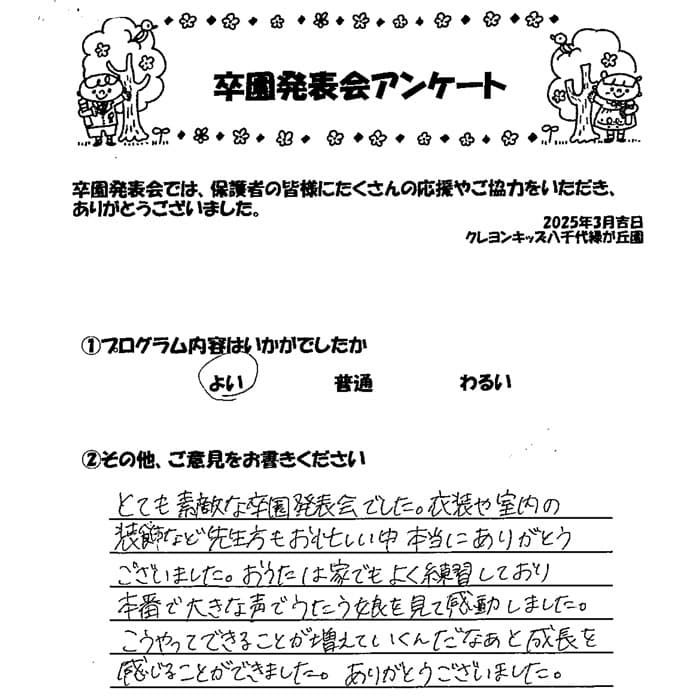 卒園発表会アンケート
卒園発表会では、保護者の皆様にたくさんの応援やご協力をいただき、
ありがとうございました。
2025年3月吉日
クレヨンキッズ八千代緑が丘園
①プログラム内容はいかがでしたか
よい 普通 わるい
②その他、ご意見をお書きください
とても素敵な卒園発表会でした。衣装や室内の
装飾など先生方もお忙しい中 本当にありがとう
ございました。おうたは家でもよく練習しており
本番で大きな声でうたう娘を見て感動しました。
こうやってできることが増えていくんだなあと成長を
感じることができました。ありがとうございました。